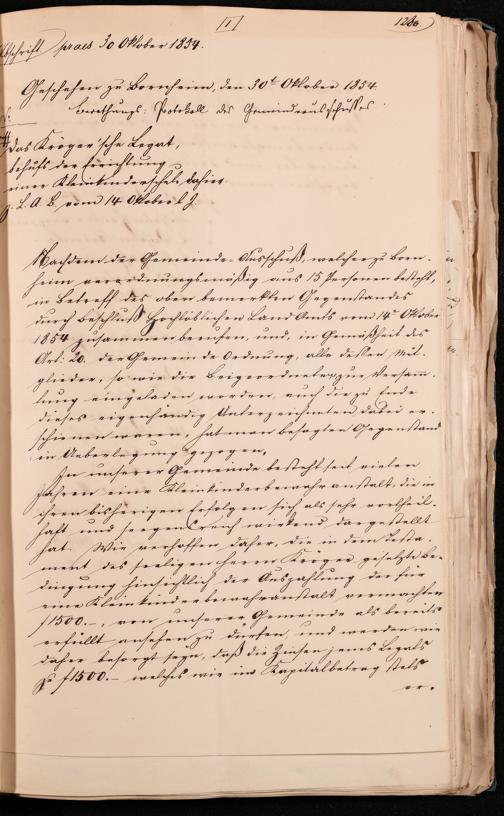 [1]
128a
Abschrift praes 30 Oktober 1854.
Geschehen zu Bornheim, den 30t Oktober 1854.
Berathungs-Protokoll des Gemeindeausschußes.
Das Kröger'sche Legat,
behufs der Errichtung
einer Kleinkinderschule dahier
z. L. A. B. vom 14 Oktober l. J.
Nachdem der Gemeinde-Ausschuß, welcher zu Born-
heim verordnungsmäßig aus 15 Personen besteht,
in Betreff des oben bemerkten Gegenstandes
durch Beschluß Hochlöblichen Land Amts vom 14t Oktober
1854 zusammenberufen, und, in Gemäßheit des
Art: 20. der Gemeinde Ordnung, alle dessen Mit-
glieder, so wie die Beigeordneten zur Versamm-
lung eingeladen worden, auch die zu Ende
dieses eigenhändig Unterzeichneten dabei er-
schienen waren, hat man besagten Gegenstand
in Ueberlegung gezogen.
In unserer Gemeinde besteht seit vielen
Jahren eine Kleinkinderbewahranstalt, die in
ihren bisherigen Erfolgen sich als sehr vortheil-
haft und segensreich wirkend dargestellt
hat. Wir verhoffen daher, die in dem Testa-
ment des seeligen Herrn Kröger gesetzte Be-
dingung hinsichtlich der Auszahlung der für
eine Kleinkinderbewahranstalt vermachten
f 1500.–, von unserer Gemeinde als bereits
erfüllt ansehen zu dürfen, und werden wir
daher besorgt seyn, daß die Zinsen jenes Legats
zu f 1500.– welches wir im Kapitalbetrag stets
er-